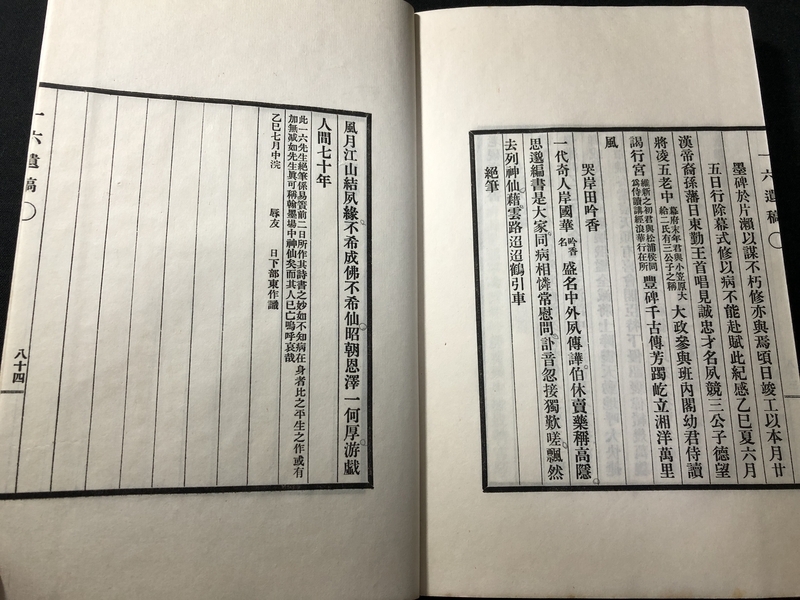 一六遺稿
墨碑於片瀨以謀不朽修亦與焉頃日竣工以本月廿
五日行除幕式修以病不能赴賦此紀感乙巳夏六月
漢帝裔孫藩日東勤王首唱見誠忠才名夙競三公子德望
將凌五老中
幕府末年君與小笠原大
給二氏有三公子之稱
大政參與班內閣幼君侍讀
謁行宮
維新之初君與松浦侯同
爲侍讀講經浪華行在所
豐碑千古傳芳躅屹立湘洋萬里
風
哭岸田吟香
一代奇人岸國華
吟香
名
盛名中外夙傳譁伯休賣藥稱高隱
思邈編書是大家同病相憐常慰問訃音忽接獨歎嗟飄然
去列神仙藉雲路迢迢鶴引車
絕筆
風月江山結夙緣不希成佛不希仙昭朝恩澤一何厚游戲
人間七十年
此一六先生絕筆係易簀前二日所作其詩書之妙如不知病在身者比之平生之作或有
加無减如先生眞可稱翰墨場中神仙矣而其人已亡嗚呼哀哉
乙巳七月中浣
辱友
日下部東作識
一六遺稿
八十四